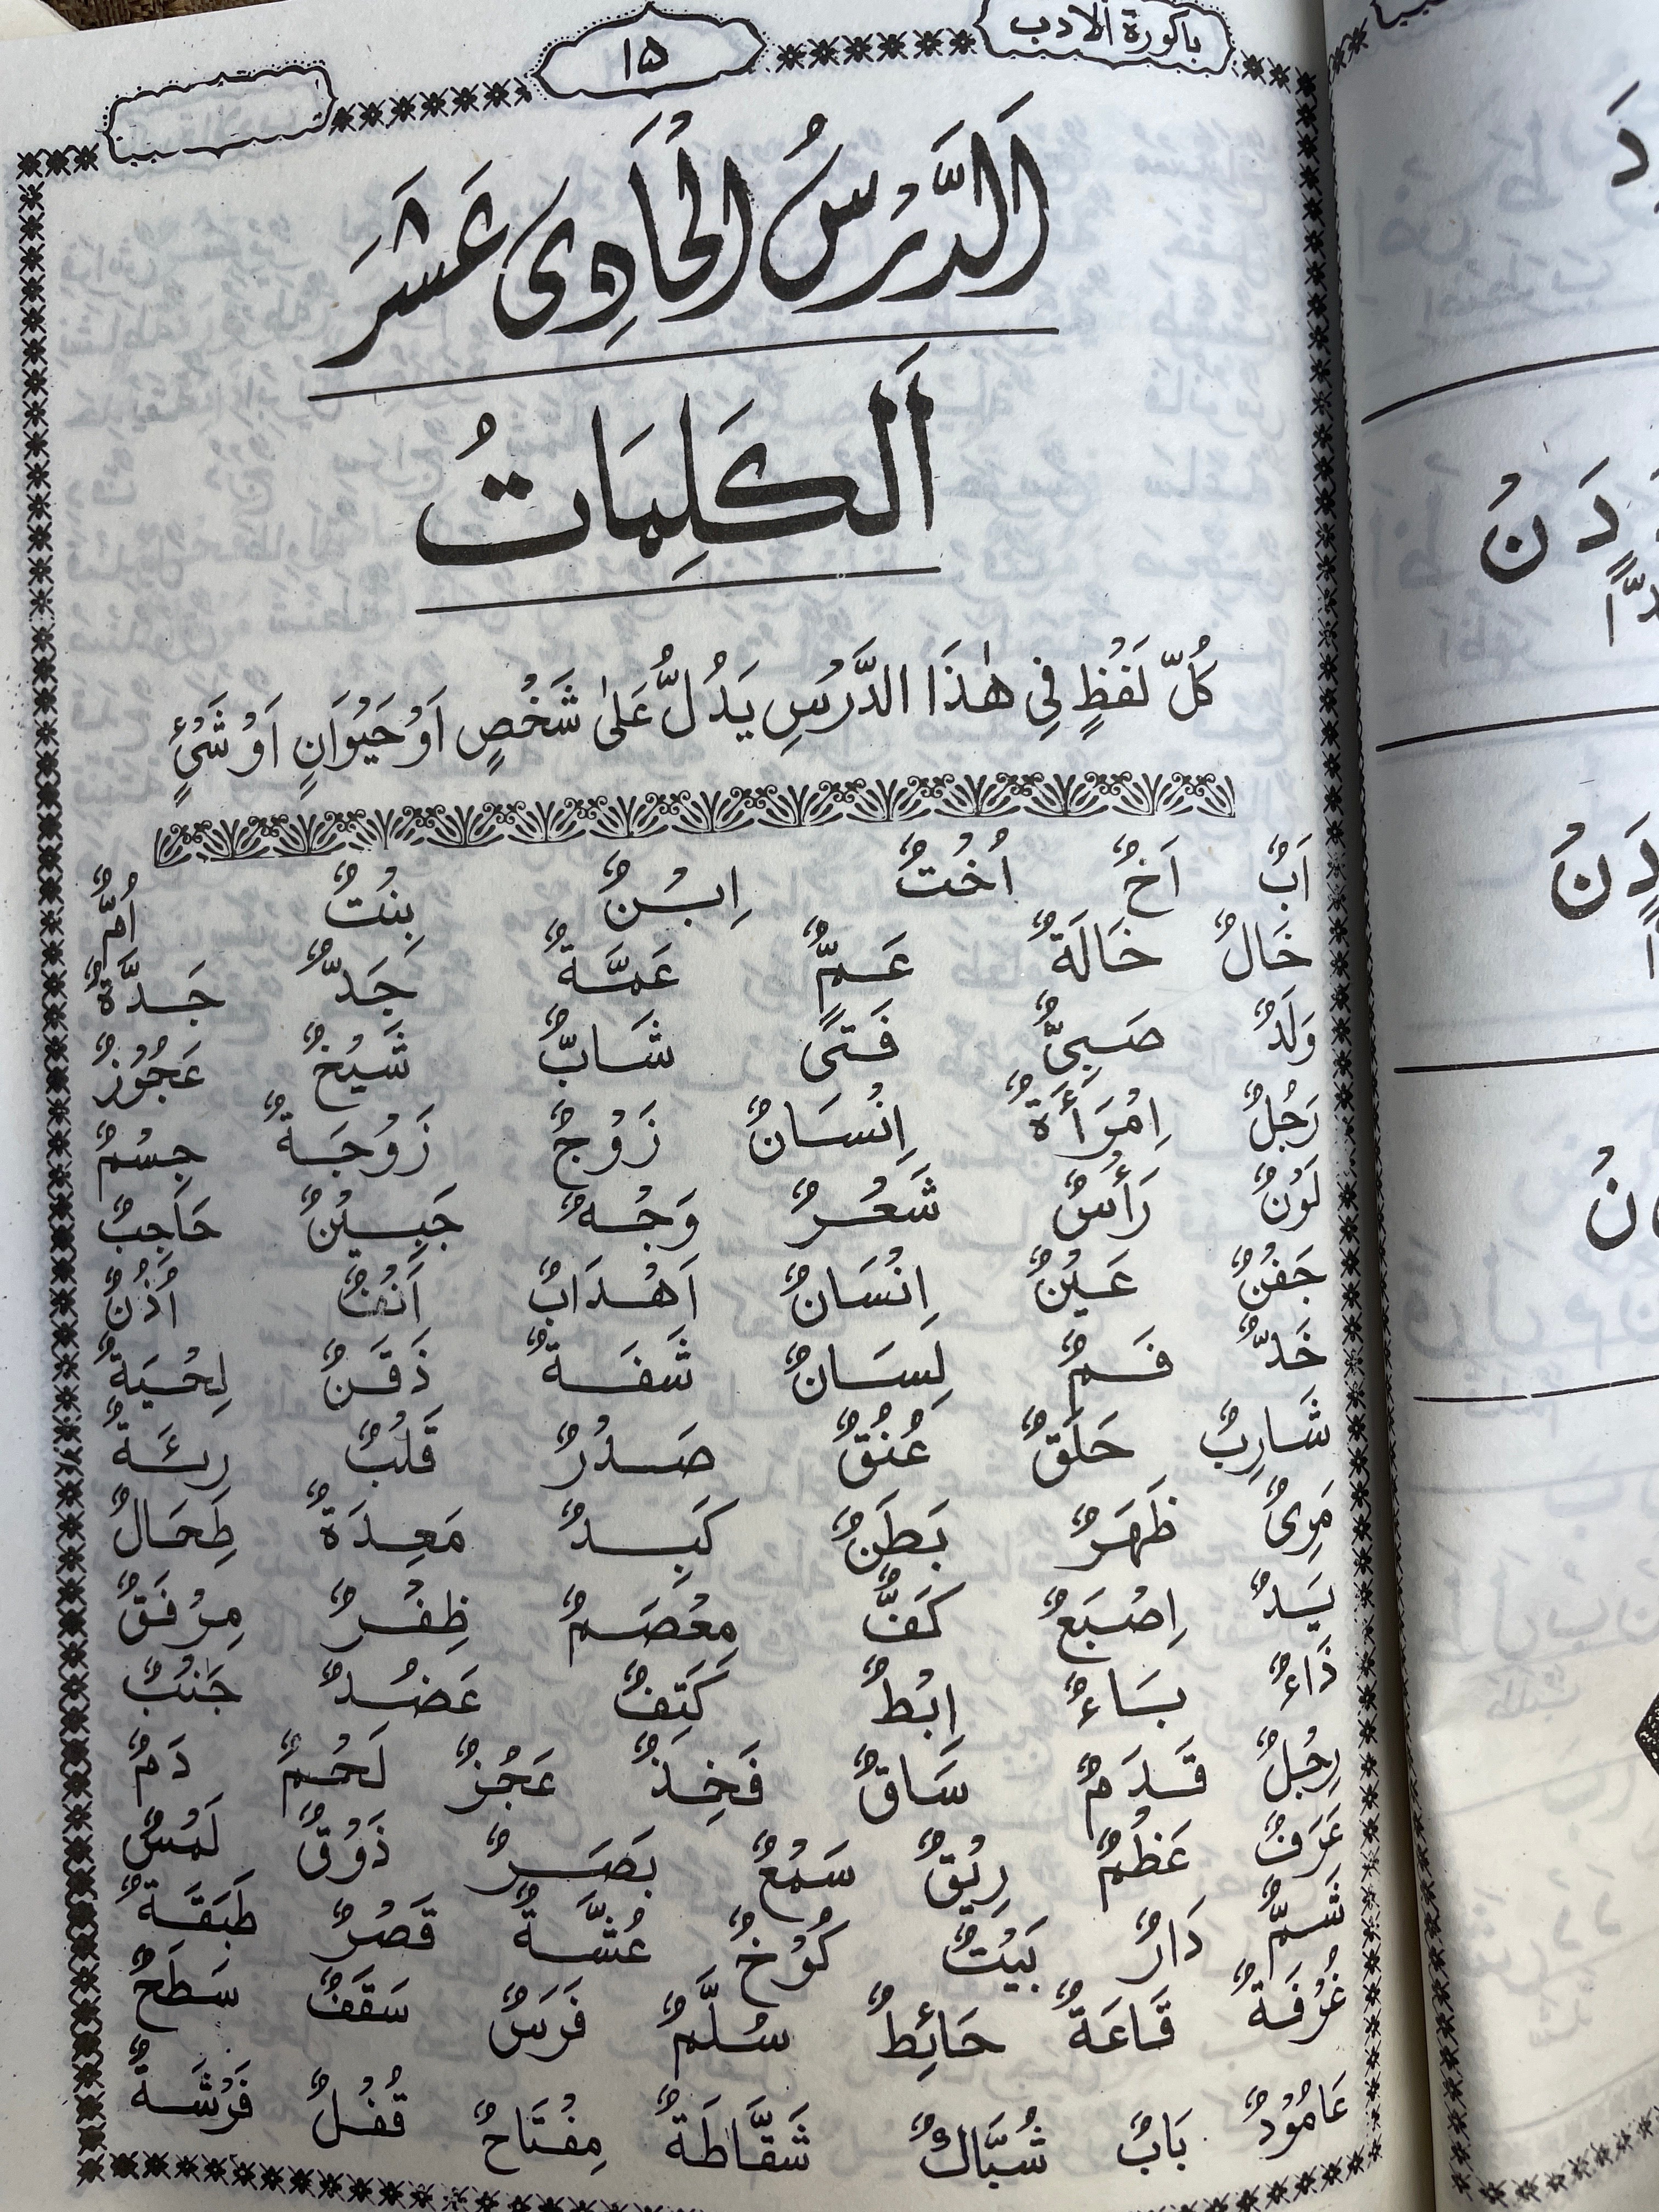 باكورة الادب
۱۵
اَلدَّرْسُ الْحَادِى عَشَرَ
اَلْكَلِمَاتُ
كُلّ لَفْظٍ فِي هٰذَا الدَّرْسِ يَدُلُّ عَلىٰ شَخْصٍ اَوْ حَيْوَانٍ اَوْ شَيْءٍ
اَبٌ اَخٌ اُخْتٌ اِبْنٌ بِنْتٌ اُمٌّ
خَالٌ خَالَةٌ عَمٌّ عَمَّةٌ جَدٌّ جَدَّةٌ
وَلَدٌ صَبِيٌّ فَتًى شَابٌّ شَيْخٌ عَجُوْزٌ
رَجُلٌ اِمْرَأَةٌ اِنْسَانٌ زَوْجٌ زَوْجَةٌ جِسْمٌ
لَوْنٌ رَأْسٌ شَعْرٌ وَجْهٌ جَبِيْنٌ حَاجِبٌ
جَفْنٌ عَيْنٌ اِنْسَانٌ اَهْدَابٌ اَنْفٌ اُذُنٌ
خَدٌّ فَمٌ لِسَانٌ شَفَةٌ ذَقَنٌ لِحْيَةٌ
شَارِبٌ حَلْقٌ عُنُقٌ صَدْرٌ قَلْبٌ رِئَةٌ
مَرِىٌ ظَهَرٌ بَطَنٌ كَبِدٌ مَعِدَةٌ طِحَالٌ
يَدٌ اِصْبَعٌ كَفٌّ مِعْصَمٌ ظِفْرٌ مِرْفَقٌ
ذَاءٌ بَاءٌ اِبْطٌ كَتِفٌ عَضُدٌ جَنْبٌ
رِجْلٌ قَدَمٌ سَاقٌ فَخِذٌ عَجُزٌ لَحْمٌ دَمٌ
عَرَفٌ عَظْمٌ رِيْقٌ سَمْعٌ بَصَرٌ ذَوْقٌ لَمْسٌ
شَمٌّ دَارٌ بَيْتٌ كُوْخٌ عُشَّةٌ قَصْرٌ طَبَقَةٌ
غُرْفَةٌ قَاعَةٌ حَائِطٌ سُلَّمٌ فَرَسٌ سَقَفٌ سَطَحٌ
عَامُوْدٌ بَابٌ شُبَّاكٌ شَقَّاطَةٌ مِفْتَاحٌ قُفْلٌ فَرْشَةٌ